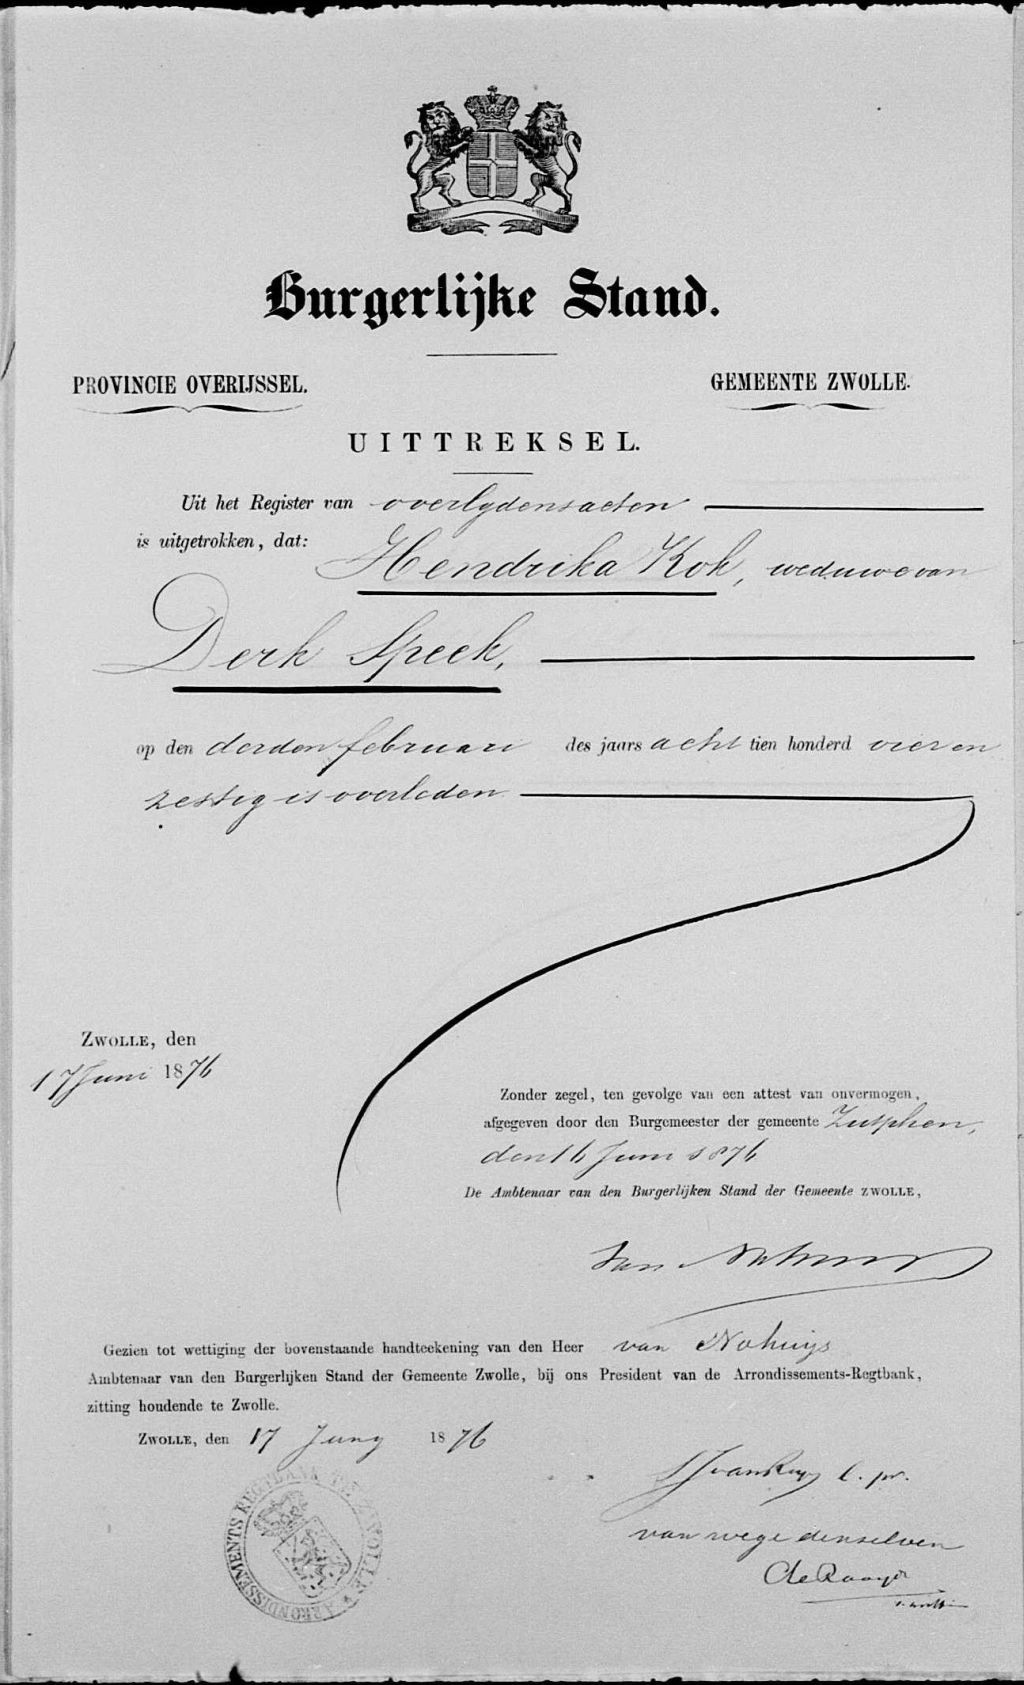 Burgerlijke Stand.
PROVINCIE OVERIJSSEL.
GEMEENTE ZWOLLE.
UITTREKSEL.
Uit het Register van overlydensacten
is uitgetrokken, dat: Hendrika Kok, weduwe van
Derk Speek,
op den derden februari des jaars acht tien honderd vier en
zestig is overleden
ZWOLLE, den
17 Juni 1876
Zonder zegel, ten gevolge van een attest van onvermogen,
afgegeven door den Burgemeester der gemeente Zutphen,
den 16 Juni 1876
De Ambtenaar van den Burgerlijken Stand der Gemeente ZWOLLE,
Gezien tot wettiging der bovenstaande handteekening van den Heer van Nahuijs
Ambtenaar van den Burgerlijken Stand der Gemeente Zwolle, bij ons President van de Arrondissements-Regtbank,
zitting houdende te Zwolle.
ZWOLLE, den 17 Juny 1876
van wege denselven
ARRONDISSEMENTS REGTBANK TE ZWOLLE